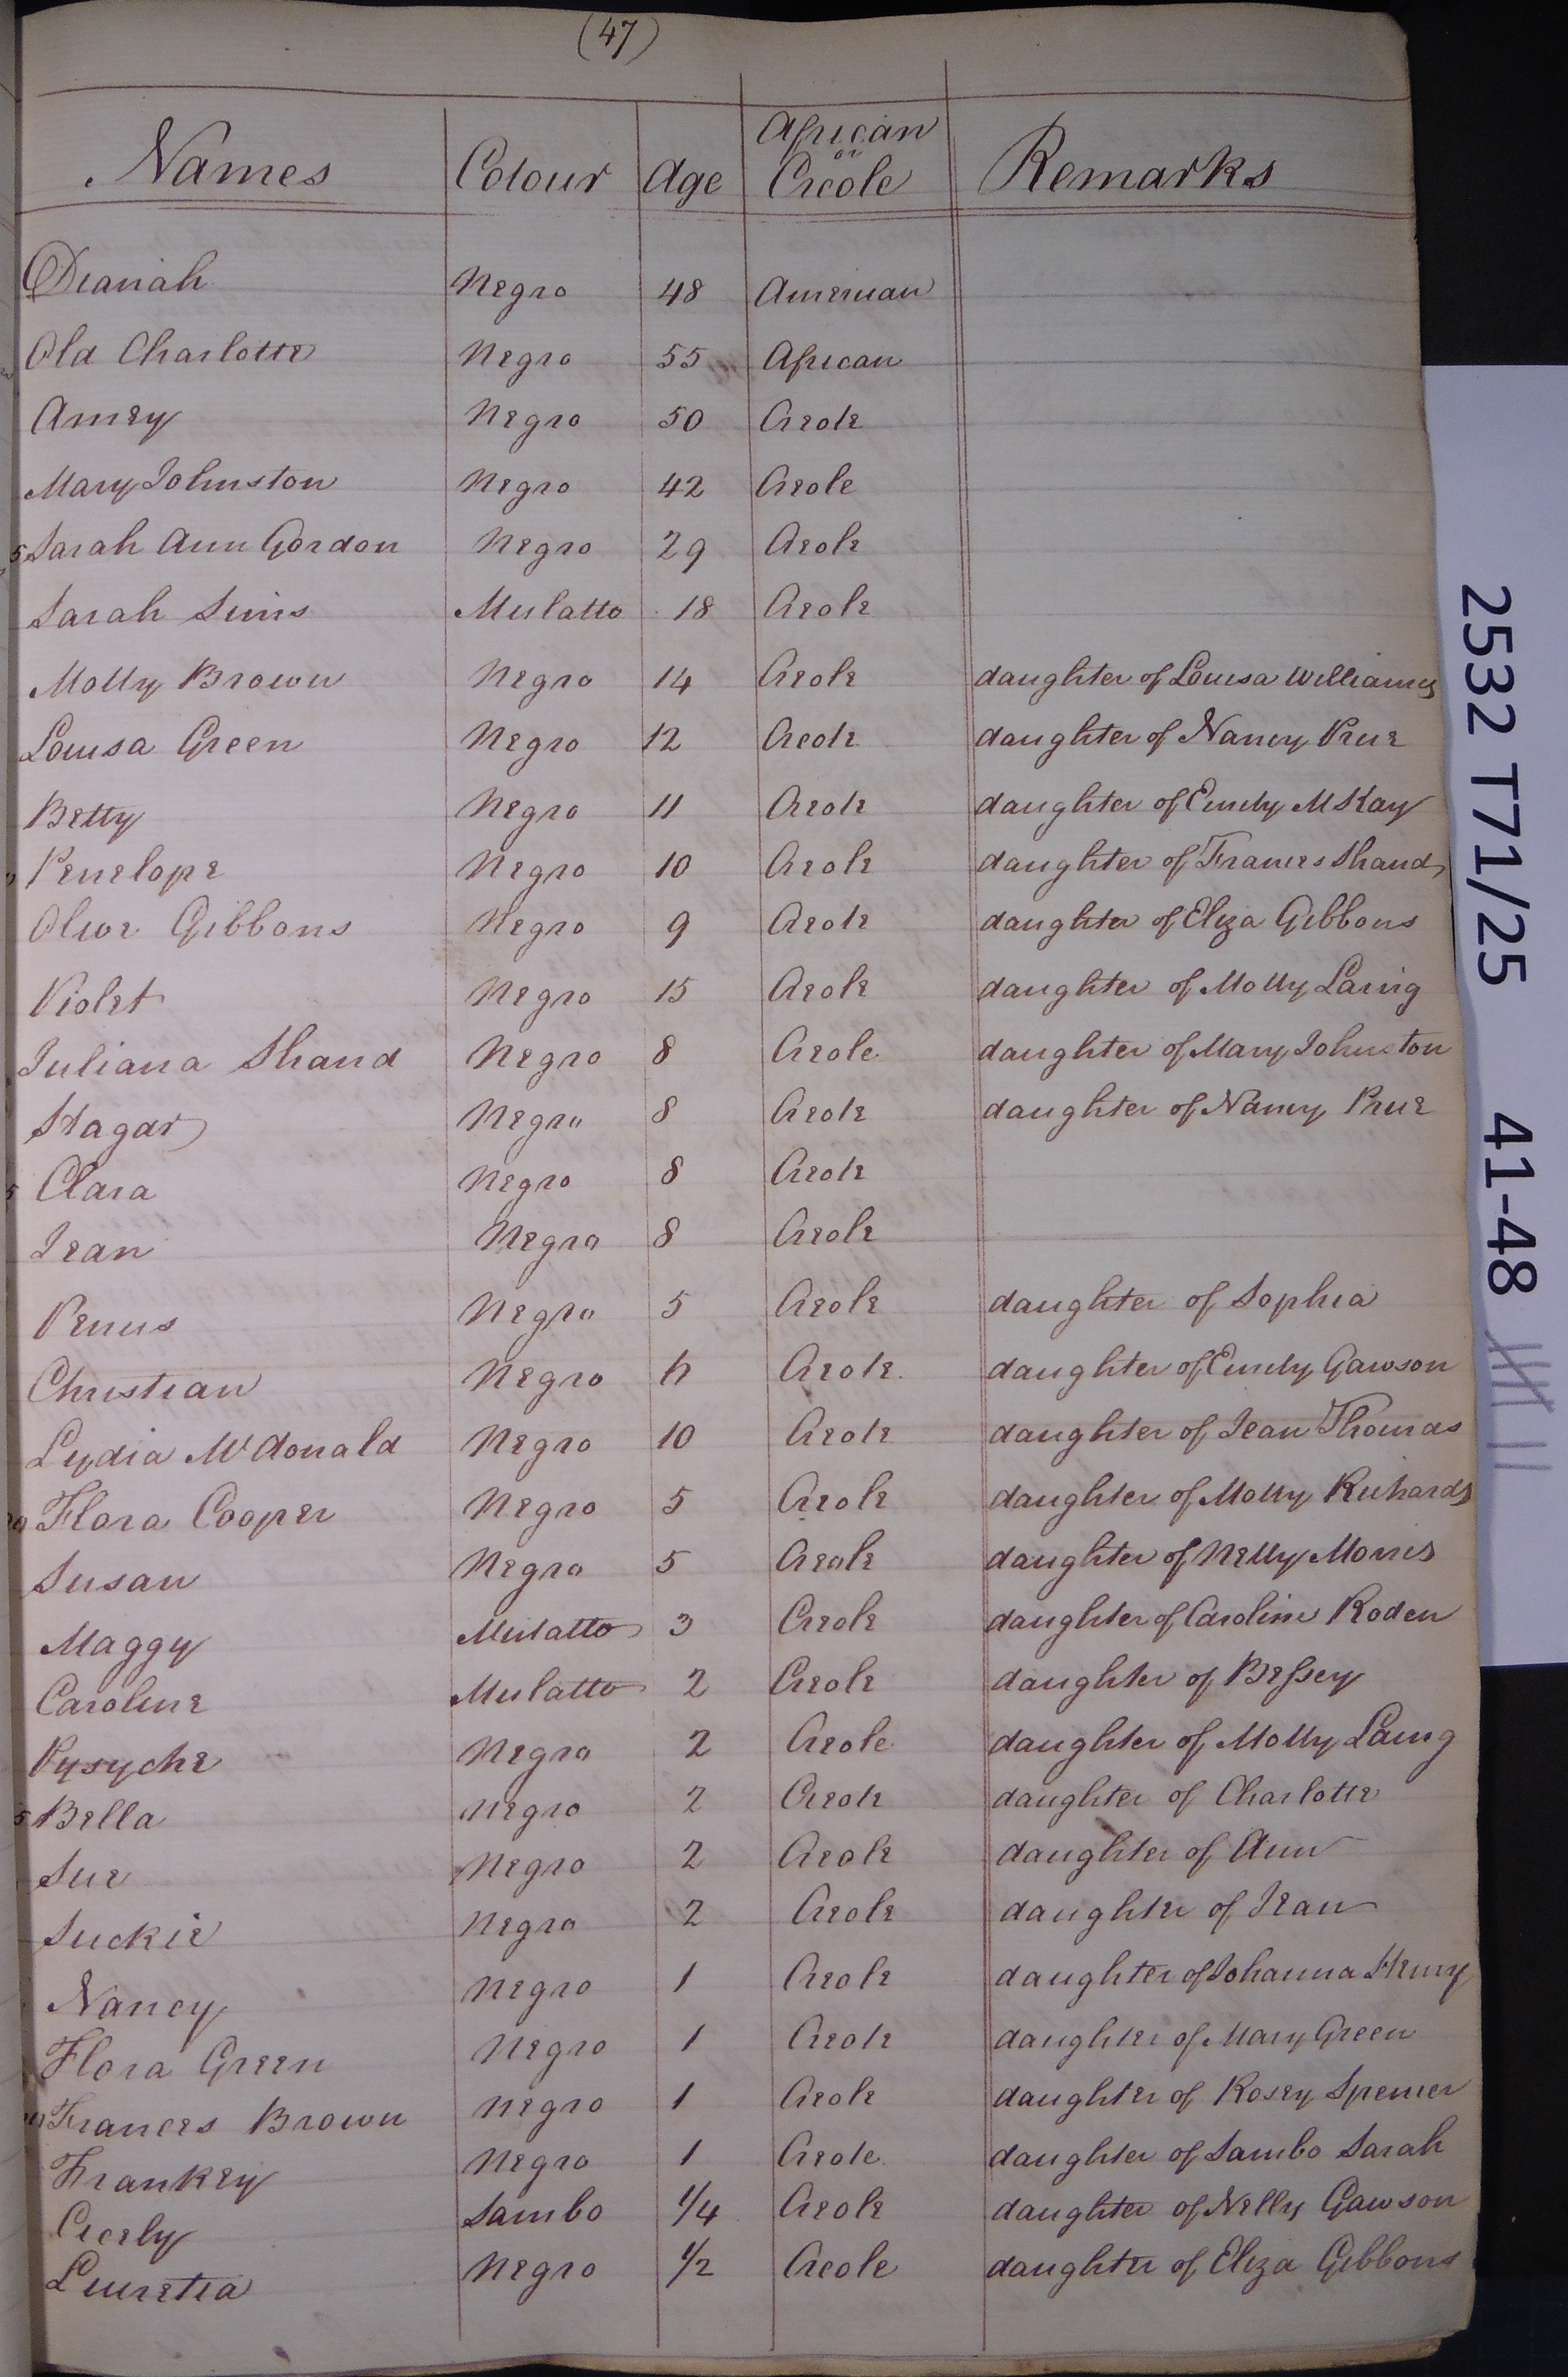 (47)
Names Colour Age African or Creole Remarks
Dianah Negro 48 American
Old Charlotte Negro 55 African
Amey Negro 50 Creole
Mary Johnston Negro 42 Creole
5 Sarah Ann Gordon Negro 29 Creole
Sarah Sims Mulatto 18 Creole
Molly Brown Negro 14 Creole daughter of Louisa Williams
Louisa Green Negro 12 Creole daughter of Nancy Prue
Betty Negro 11 Creole daughter of Emily McKay
Penelope Negro 10 Creole daughter of Frances Shand
Olive Gibbons Negro 9 Creole daughter of Eliza Gibbons
Violet Negro 15 Creole daughter of Molly Laing
Juliana Shand Negro 8 Creole daughter of Mary Johnston
Hagar Negro 8 Creole daughter of Nancy Prue
5 Clara Negro 8 Creole
Jean Negro 8 Creole
Venus Negro 5 Creole daughter of Sophia
Christian Negro Creole daughter of Emily Gawson
Lydia McDonald Negro 10 Creole daughter of Jean Thomas
20 Flora Cooper Negro 5 Creole daughter of Molly Richards
Susan Negro 5 Creole daughter of Nelly Morris
Maggy Mulatto 3 Creole daughter of Caroline Roden
Caroline Mulatto 2 Creole daughter of Bessey
Pysyche Negro 2 Creole daughter of Molly Laing
5 Bella Negro 2 Creole daughter of Charlotte
Sue Negro 2 Creole daughter of Ann
Suckie Negro 2 Creole daughter of Jean
Nancy Negro 1 Creole daughter of Johanna Henry
Flora Green Negro 1 Creole daughter of Mary Green
Frances Brown Negro 1 Creole daughter of Rosey Spencer
Frankey Negro 1 Creole daughter of Sambo Sarah
Cicely Sambo 1/4 Creole daughter of Nelly Gawson
Lucretia Negro 1/2 Creole daughter of Eliza Gibbons
2532 T71/25 41-48